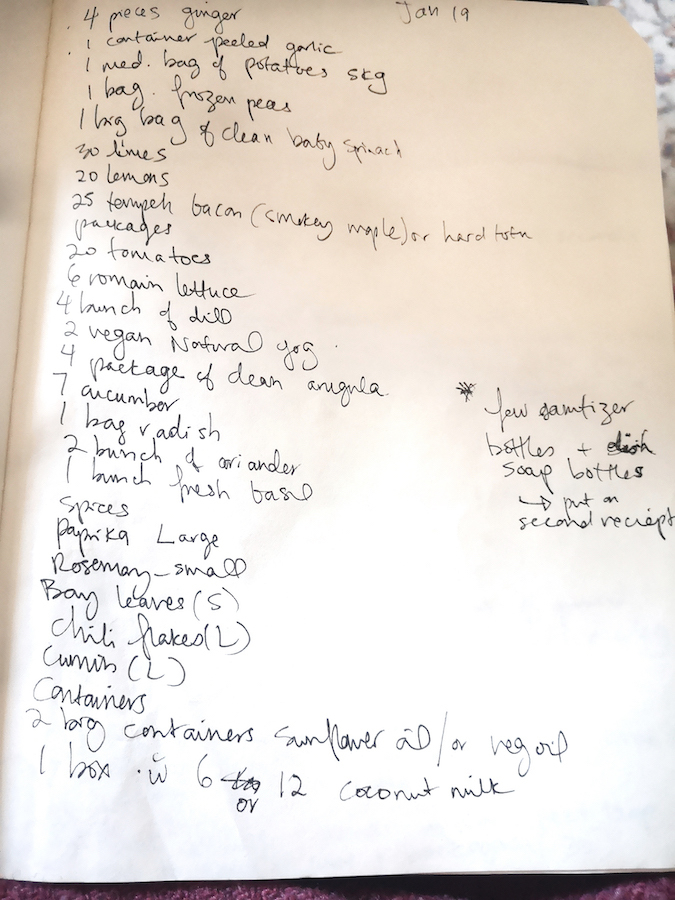 Jan 19
4 pieces ginger
1 container peeled garlic
1 med. bag of potatoes 5kg
1 bag. frozen peas
1 big bag of clean baby spinach
30 limes
20 lemons
25 tempeh bacon (smokey maple) or hard tofu
packages
20 tomatoes
6 romain lettuce
4 bunch of dill
2 vegan Natural yog.
4 package of clean arugula.
7 cucumber
1 bag radish
2 bunch of coriander
1 bunch fresh basil
Spices
Paprika Large
Rosemary - small
Bay leaves (S)
Chili flakes (L)
Cumin (L)
Containers
2 big containers sunflower oil / or veg oil
1 box . w 6 or 12 coconut milk
* few sanitizer
bottles + dish
soap bottles
→ put on
second reciept